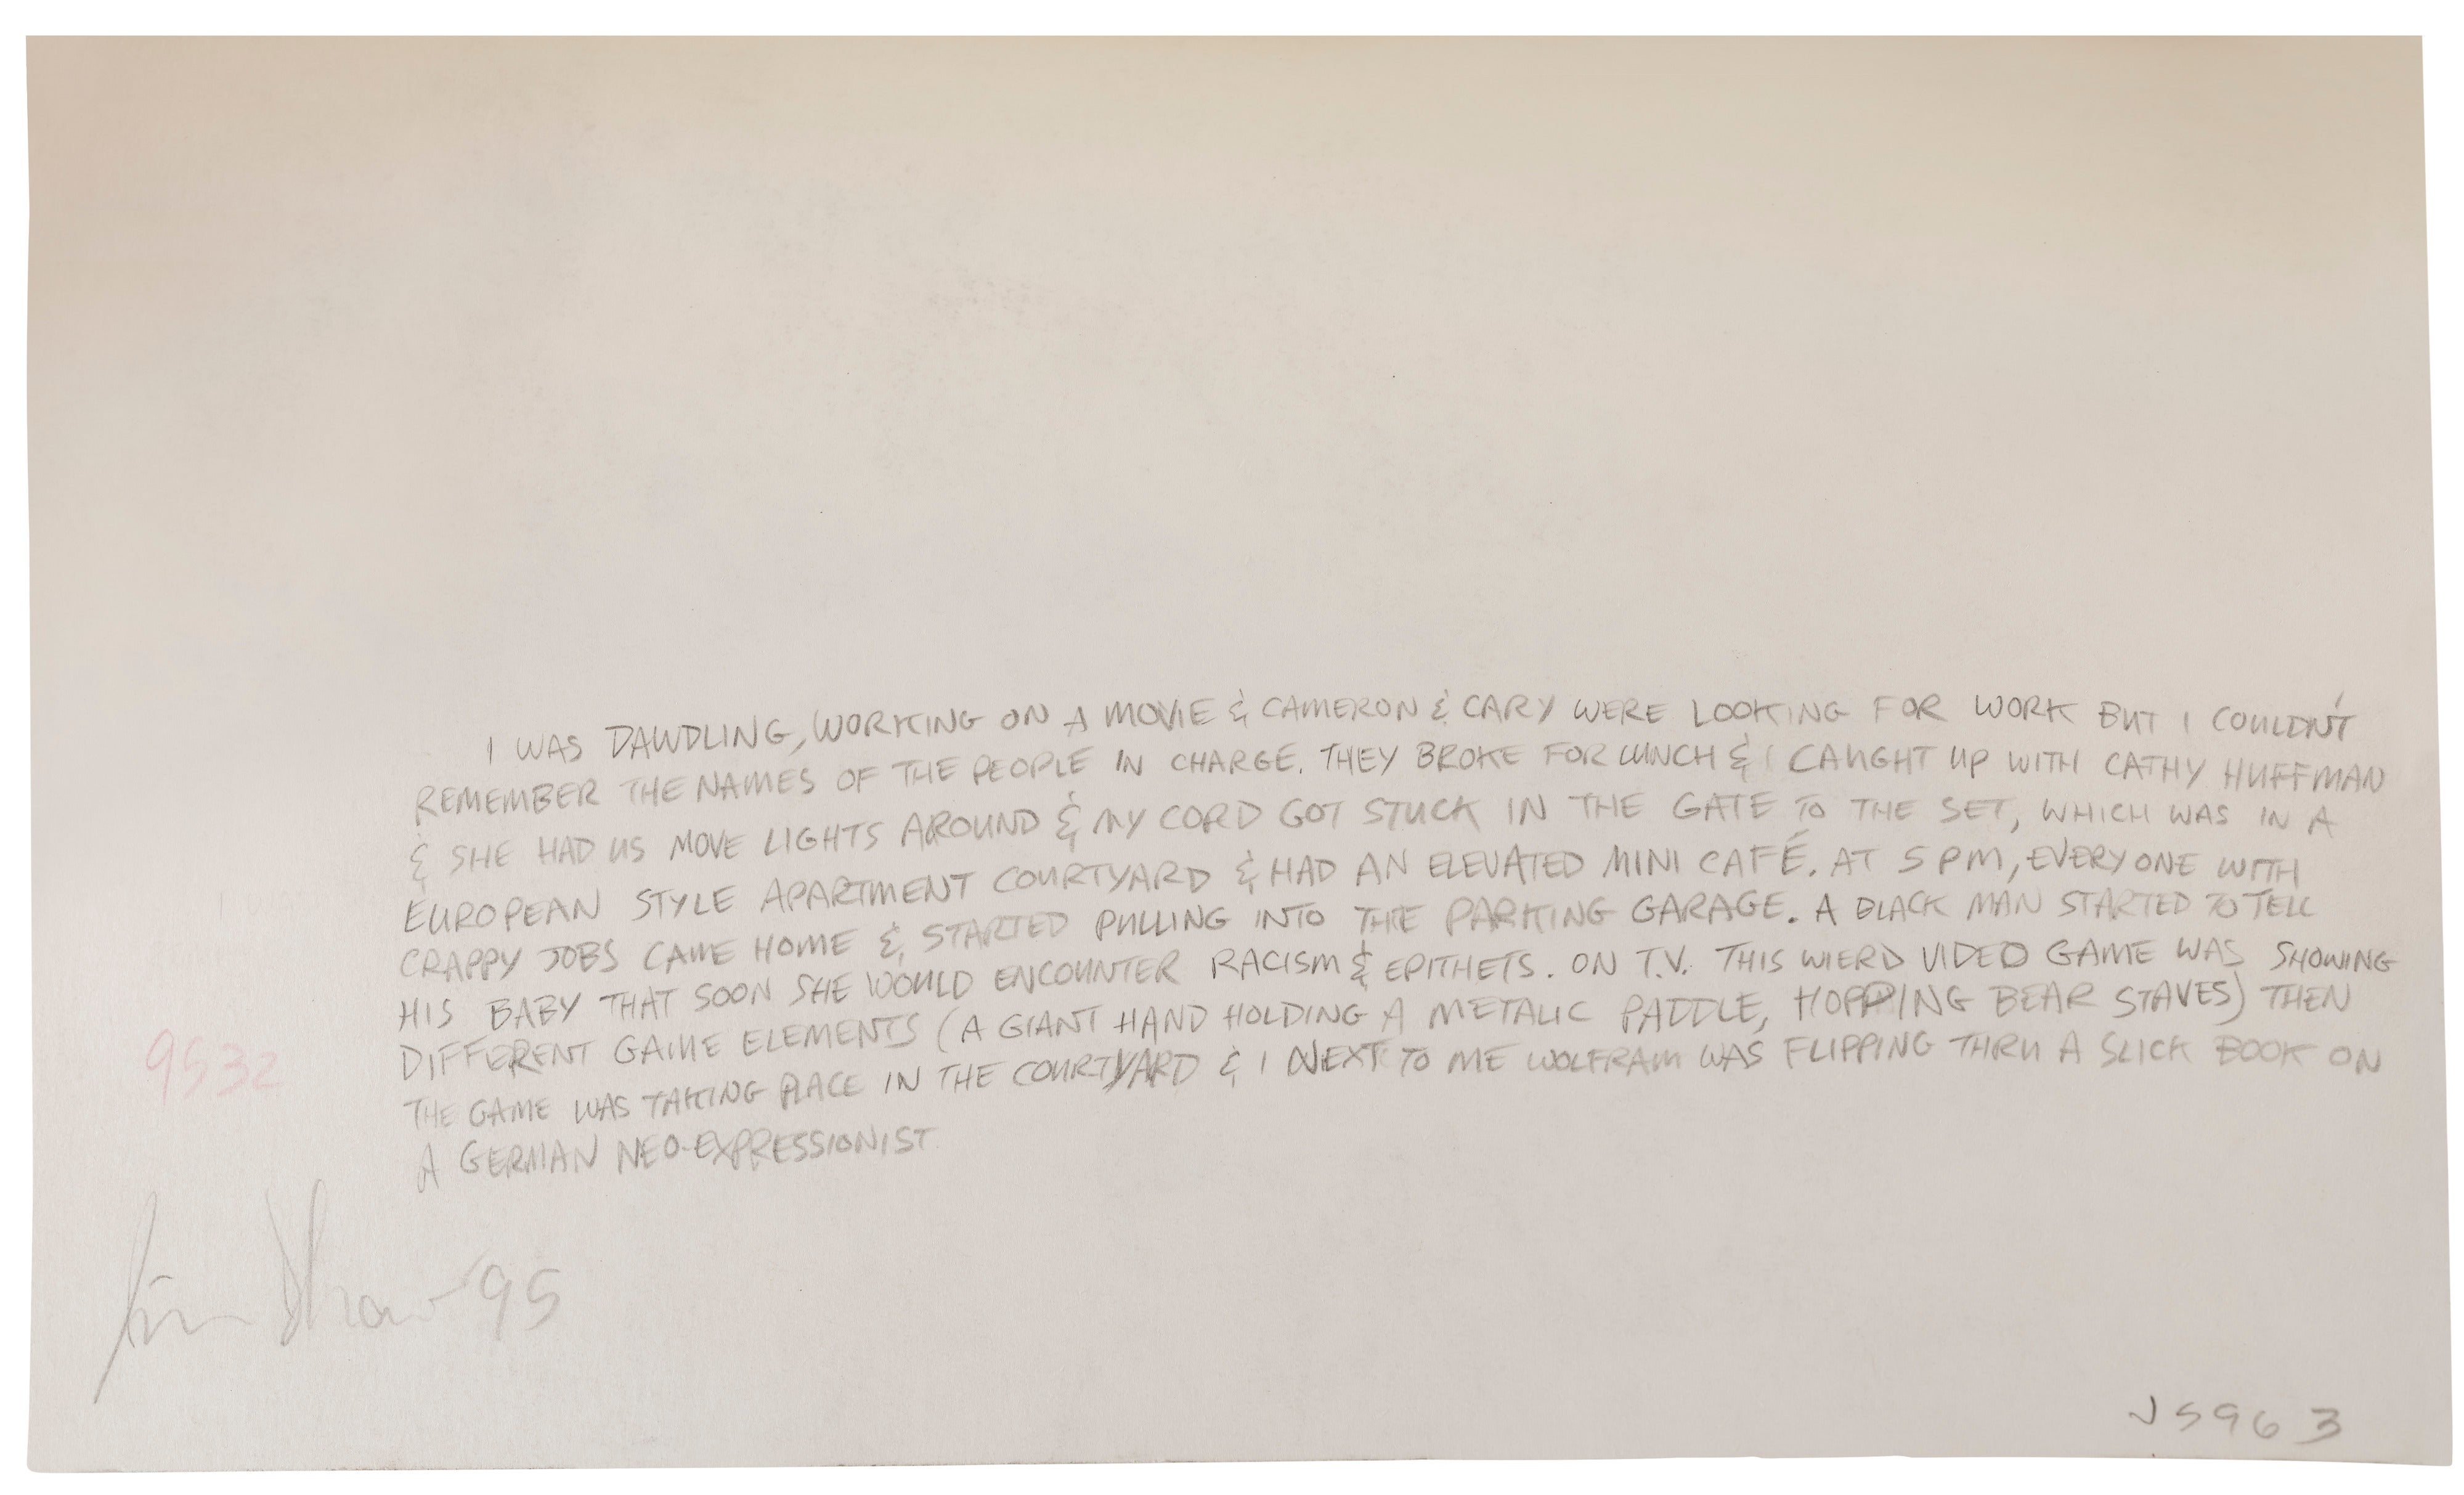 I WAS DAWDLING, WORKING ON A MOVIE & CAMERON & CARY WERE LOOKING FOR WORK BUT I COULDN'T
REMEMBER THE NAMES OF THE PEOPLE IN CHARGE. THEY BROKE FOR LUNCH & I CAUGHT UP WITH CATHY HUFFMAN
& SHE HAD US MOVE LIGHTS AROUND & MY CORD GOT STUCK IN THE GATE TO THE SET, WHICH WAS IN A
EUROPEAN STYLE APARTMENT COURTYARD & HAD AN ELEVATED MINI CAFÉ. AT 5 PM, EVERYONE WITH
CRAPPY JOBS CAME HOME & STARTED PULLING INTO THE PARKING GARAGE. A BLACK MAN STARTED TO TELL
HIS BABY THAT SOON SHE WOULD ENCOUNTER RACISM & EPITHETS. ON T.V. THIS WIERD VIDEO GAME WAS SHOWING
DIFFERENT GAME ELEMENTS (A GIANT HAND HOLDING A METALIC PADDLE, HOPPING BEAR STAVES) THEN
THE GAME WAS TAKING PLACE IN THE COURTYARD & I NEXT TO ME WOLFRAM WAS FLIPPING THRU A SLICK BOOK ON
A GERMAN NEO-EXPRESSIONIST
9532
Jim Shaw '95
JS963